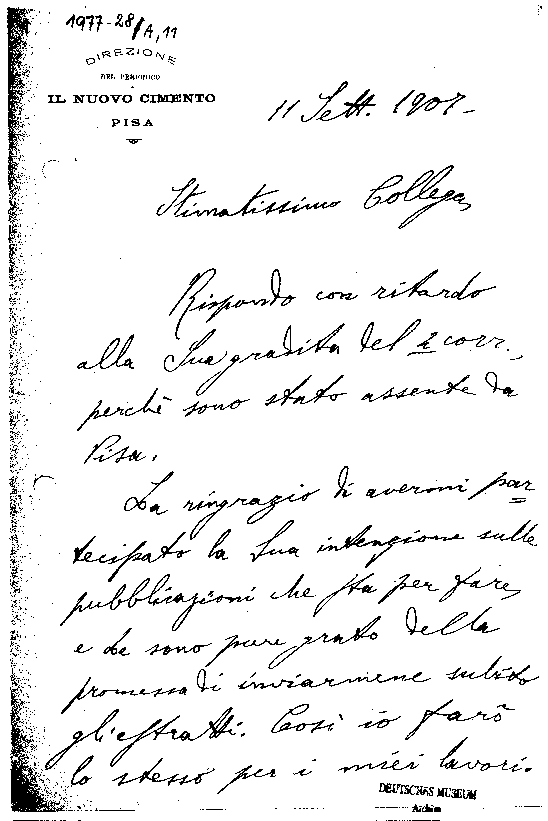 1977-28/A,11
DIREZIONE
DEL PERIODICO
IL NUOVO CIMENTO
PISA
11 Sett. 1907-
Stimatissimo Collega,
Rispondo con ritardo
alla Sua gradita del 2 corr.,
perchè sono stato assente da
Pisa.
La ringrazio di avermi par=
tecipato la Sua intenzione sulle
pubblicazioni che sta per fare,
e Le sono pure grato della
promessa di inviarmene subito
gli estratti. Così io farò
lo stesso per i miei lavori.
DEUTSCHES MUSEUM
Archiv